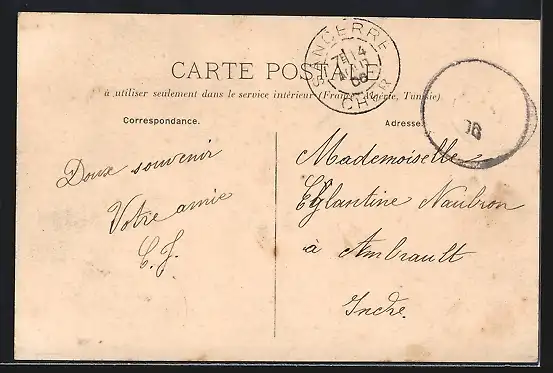 SANCERRE
CHER
CARTE POSTALE
à utiliser seulement dans le service intérieur (France, Algérie, Tunisie)
Correspondance.
Adresse
Doux souvenir
Votre amie
C. J.
Mademoiselle
Eglantine Naubron
à Ambrault
Indre.